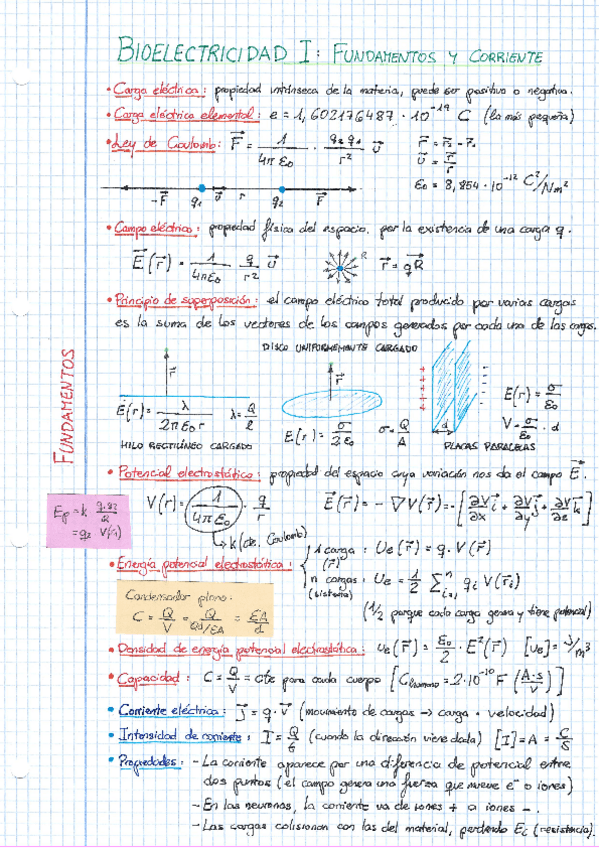 BIOELECTRICIDAD I: FUNDAMENTOS Y CORRIENTE
FUNDAMENTOS
• Carga eléctrica: propiedad intrínseca de la materia, puede ser positiva o negativa.
• Carga eléctrica elemental: e = 1,602176487 · 10⁻¹⁹ C (la más pequeña)
• Ley de Coulomb: F⃗ = 1/4πε₀ · q₂q₁/r² u⃗
r⃗ = r⃗₂ - r⃗₁
u⃗ = r⃗/r
ε₀ = 8,854 · 10⁻¹² C²/Nm²
-F⃗ q₁ u⃗ r q₂ F⃗
• Campo eléctrico: propiedad física del espacio, por la existencia de una carga q.
E⃗(r⃗) = 1/4πε₀ q/r² u⃗
R
r⃗ = qR⃗
• Principio de superposición: el campo eléctrico total producido por varias cargas
es la suma de los vectores de los campos generados por cada una de las cargas.
DISCO UNIFORMEMENTE CARGADO
r⃗
E(r) = λ/2πε₀r λ = Q/l
HILO RECTILÍNEO CARGADO
r⃗
E(r) = σ/2ε₀ σ = Q/A
+ + + + - - - -
d
E(r) = σ/ε₀
V = σ/ε₀ · d
PLACAS PARALELAS
• Potencial electrostático: propiedad del espacio cuya variación nos da el campo E⃗.
V(r) = 1/4πε₀ · q/r
E⃗(r⃗) = -∇V(r⃗) = -[∂V/∂x i⃗ + ∂V/∂y j⃗ + ∂V/∂z k⃗]
→ k (cte. Coulomb)
= q₂ V(r)
• Energía potencial electrostática:
1 carga: Ue(r⃗) = q · V(r⃗)
(r⃗)
n cargas: Ue = 1/2 Σⁿᵢ₌₁ qᵢ V(r⃗ᵢ)
(sistema)
(1/2 porque cada carga genera y tiene potencial)
Condensador plano:
C = Q/V = Q/Qd/εA = εA/d
• Densidad de energía potencial electrostática: ue(r⃗) = ε₀/2 · E²(r⃗) [ue] = J/m³
• Capacidad: C = Q/V = cte para cada cuerpo [C humano = 2·10⁻¹⁰ F (A·s/V)]
• Corriente eléctrica: j⃗ = q · v⃗ (movimiento de cargas → carga · velocidad)
• Intensidad de corriente: I = Q/t (cuando la dirección viene dada) [I] = A = C/s
• Propiedades: - La corriente aparece por una diferencia de potencial entre
dos puntos (el campo genera una fuerza que mueve e⁻ o iones)
- En las neuronas, la corriente va de iones + a iones -.
- Las cargas colisionan con las del material, perdiendo Ec (resistencia).